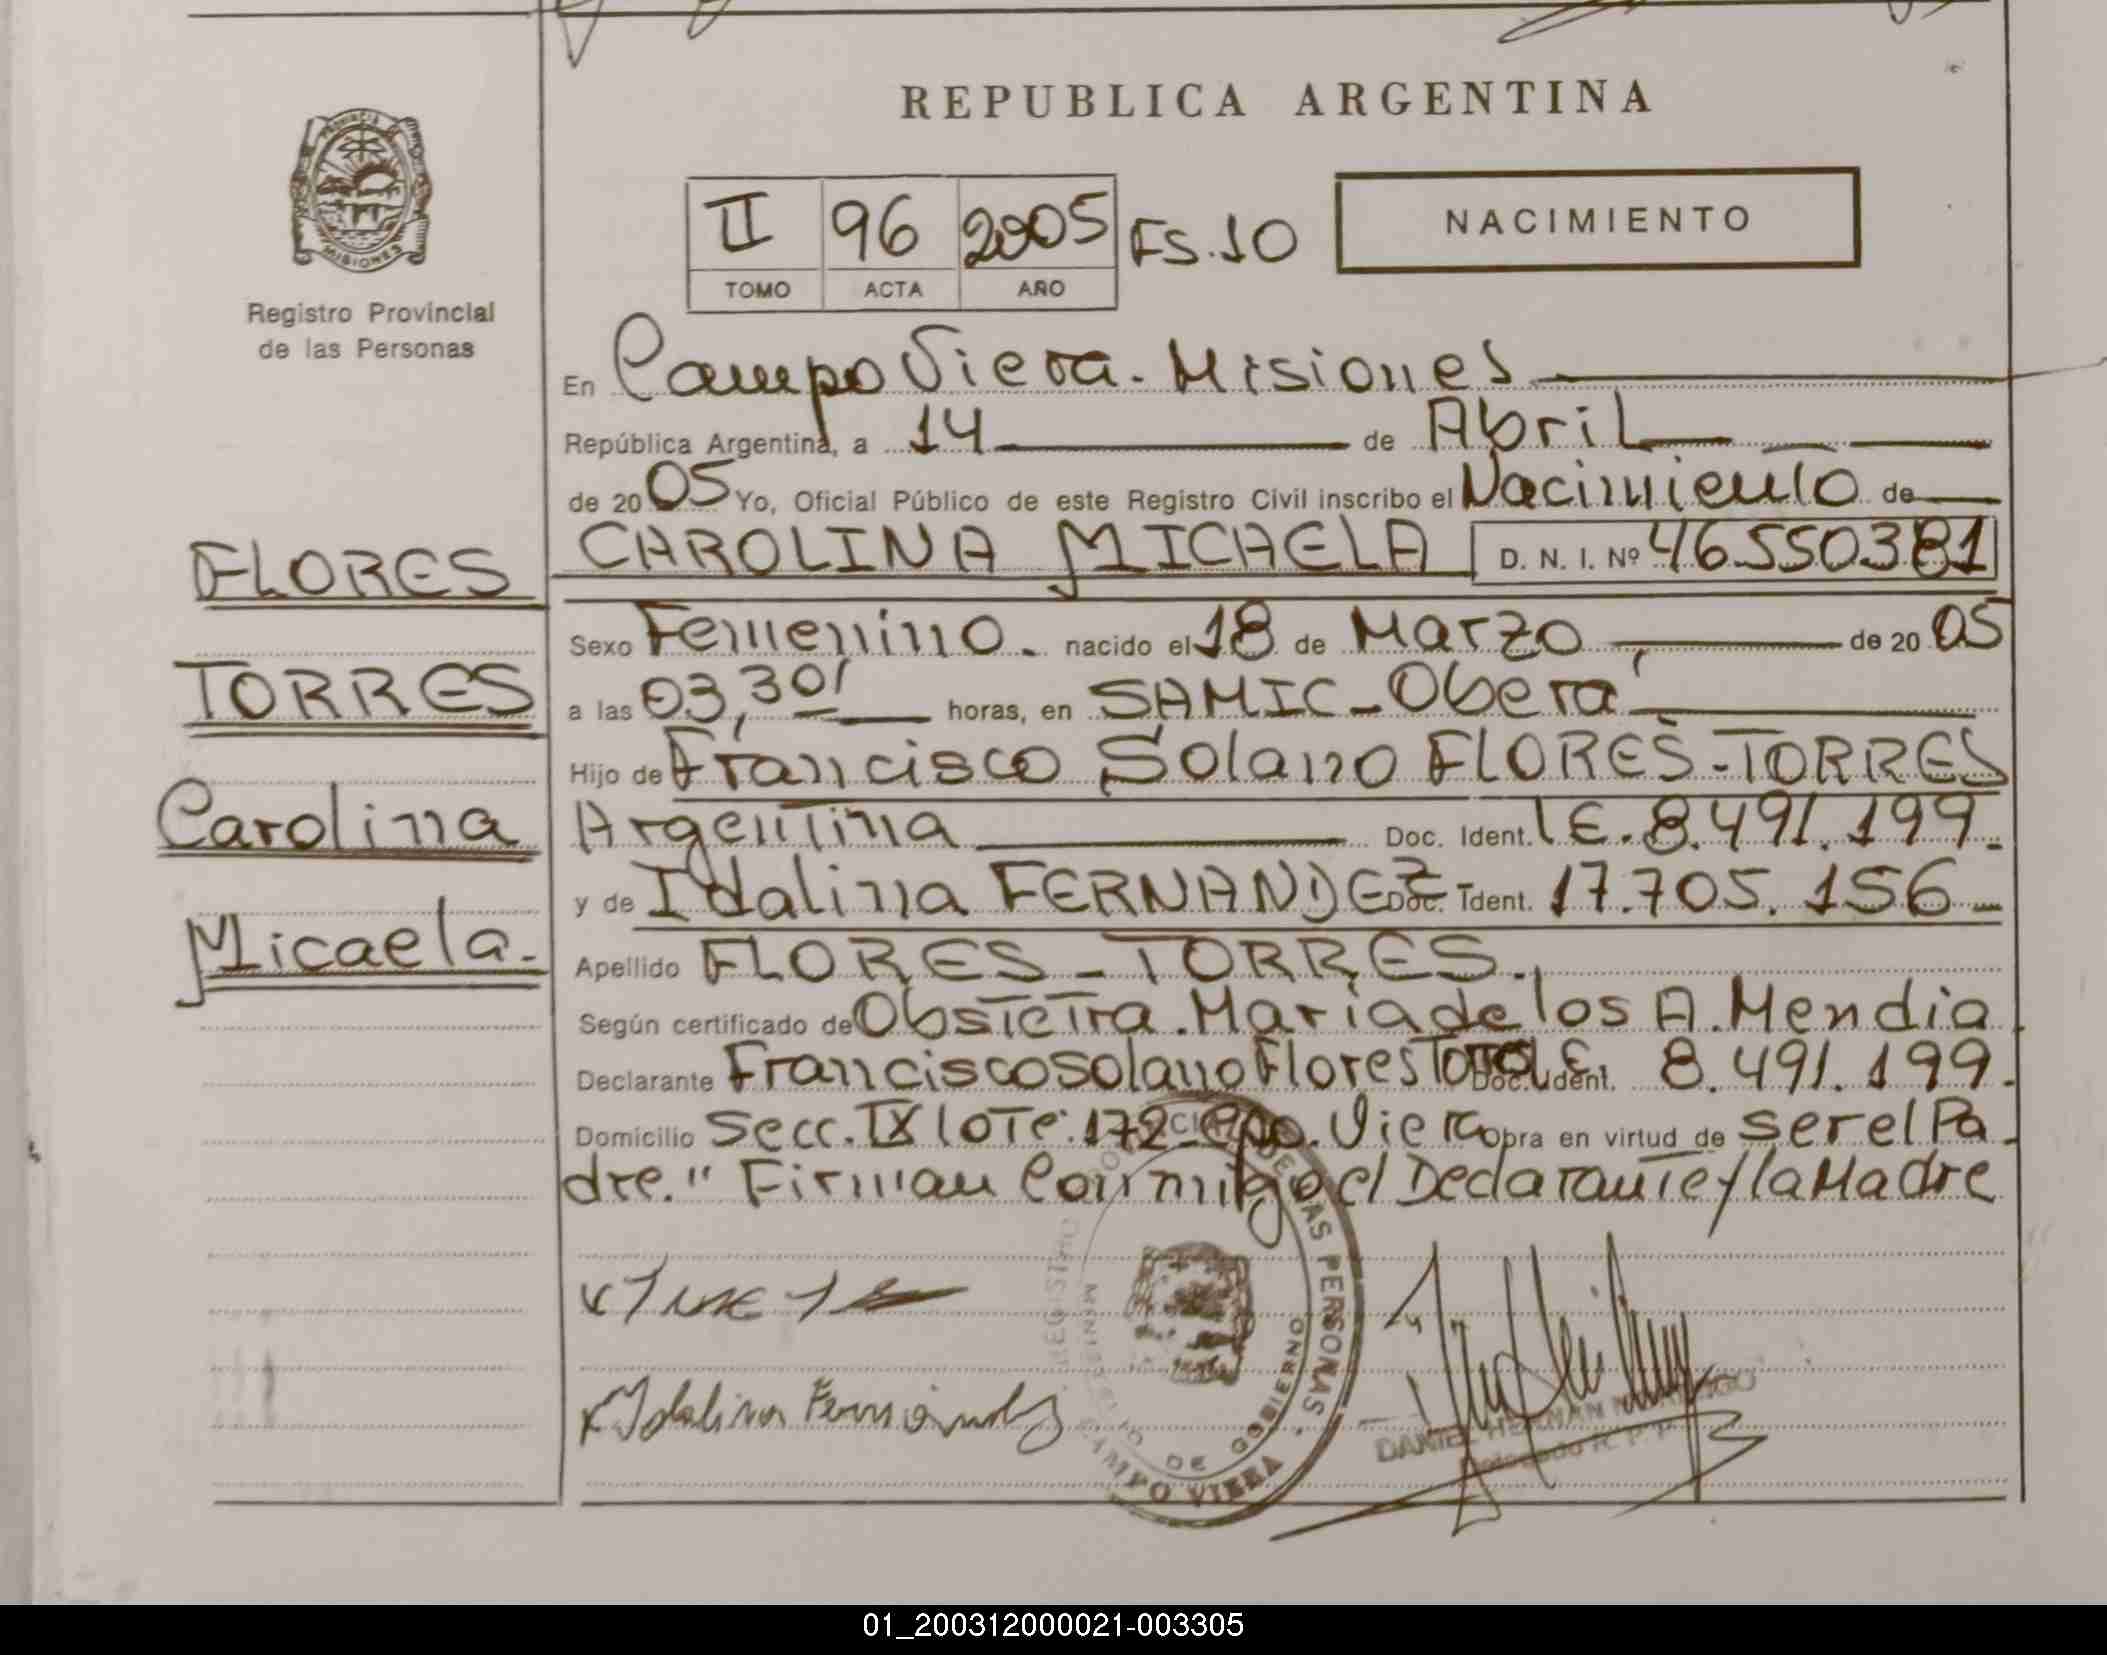 REPUBLICA ARGENTINA
PROVINCIA DE
MISIONES
Registro Provincial
de las Personas
II 96 2005 FS.10
TOMO ACTA AÑO
NACIMIENTO
En Campo Viera. Misiones
República Argentina, a 14 de Abril
de 2005 Yo, Oficial Público de este Registro Civil inscribo el Nacimiento de
CAROLINA MICAELA D. N. I. Nº 46.550.381
FLORES
TORRES
Carolina
Micaela.
Sexo Femenino. nacido el 18 de Marzo de 2005
a las 03,30' horas, en SAMIC - Oberá
Hijo de Francisco Solano FLORES - TORRES
Argentina Doc. Ident. LE. 8.491.199.
y de Idalina FERNANDEZ Doc. Ident. 17.705.156
Apellido FLORES - TORRES.
Según certificado de Obstetra. María de los A. Mendia
Declarante Francisco Solano Flores Torres Doc. Ident. L.E. 8.491.199.
Domicilio Secc. IX lote: 172 - Cpo. Viera obra en virtud de ser el Pa-
dre." Firman Conmigo el Declarante y la Madre
DE LAS PERSONAS
MINISTERIO DE GOBIERNO
CAMPO VIERA
x Idalina Fernández
DANIEL HERNAN
Delegado R. P. P.
01_200312000021-003305